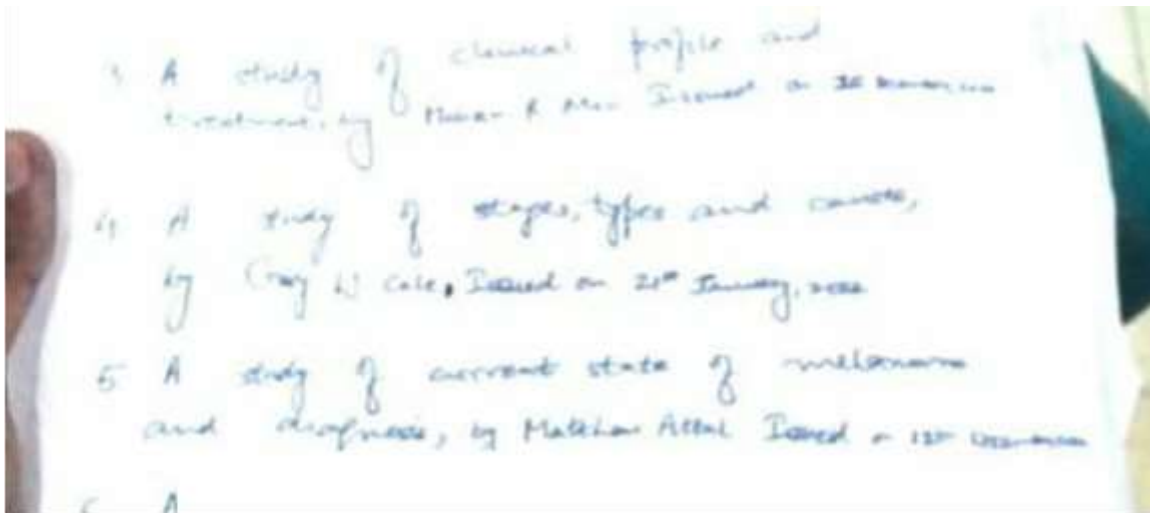 3 A study of clinical profile and
treatment, by Issued on
4 A study of stages, types and causes,
by W Cole, Issued on 21st January, 2022
5 A study of current state of melanoma
and diagnosis, by Matthew Issued on
6 A